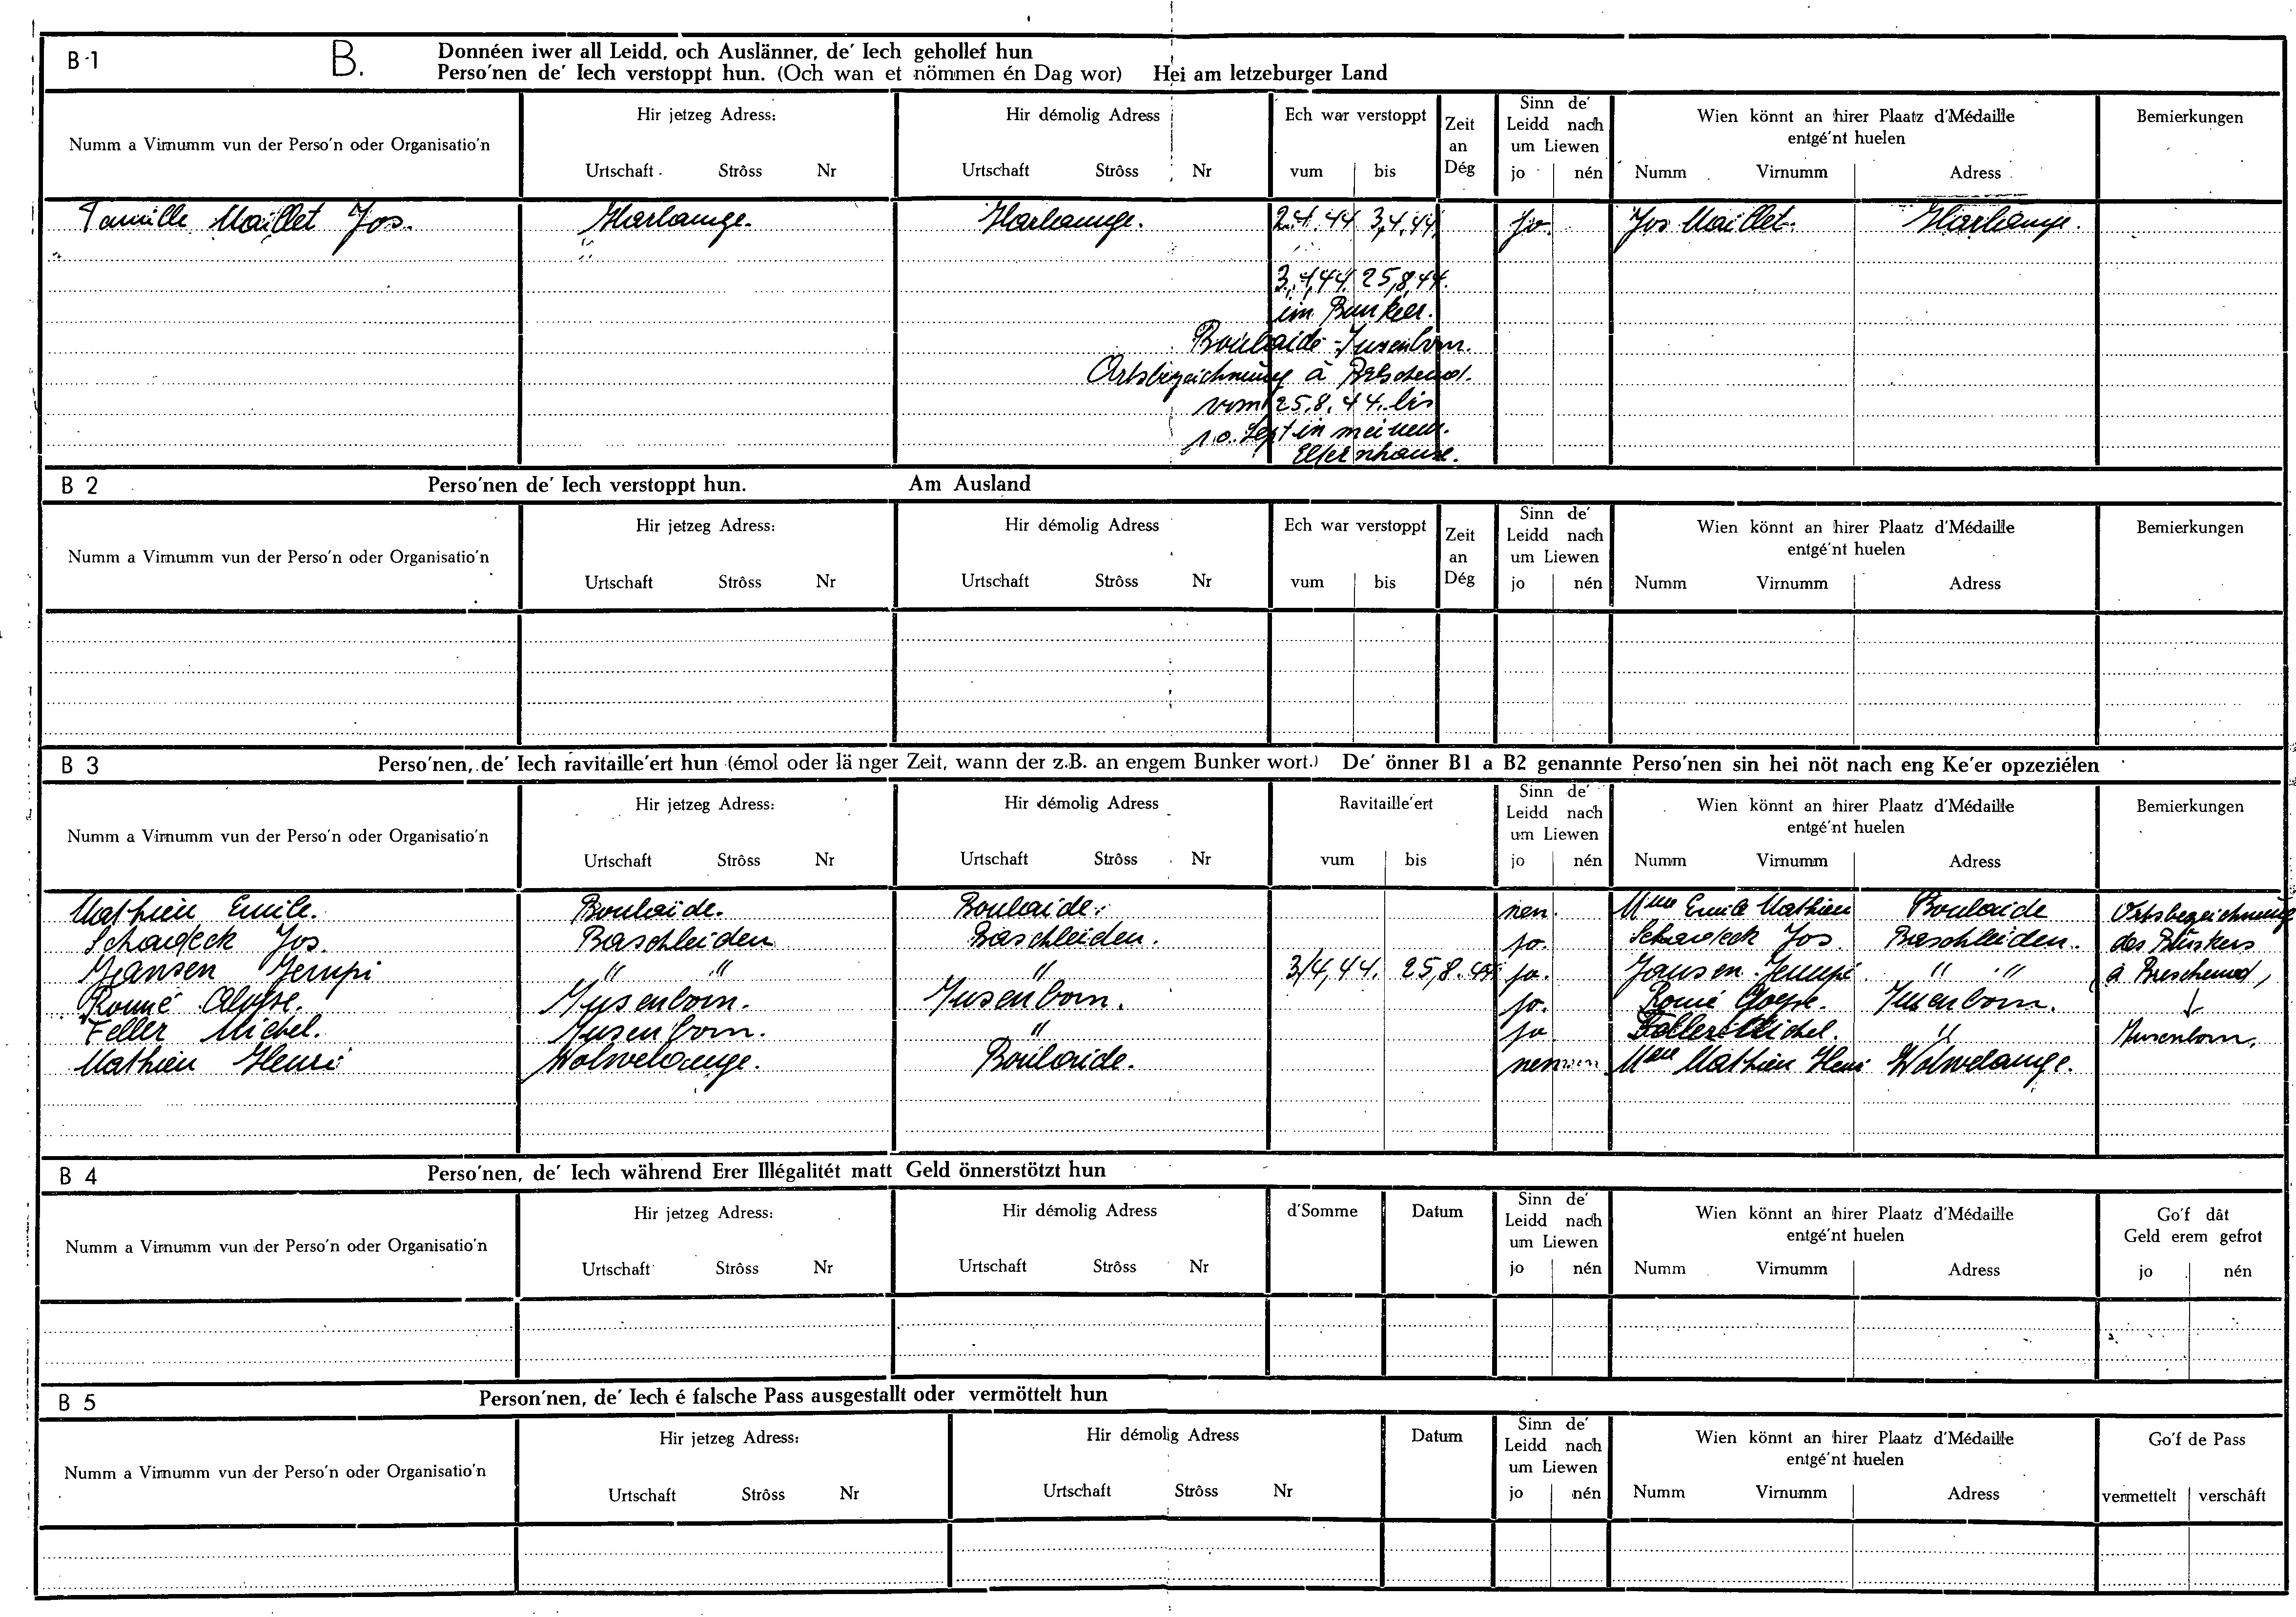 B-1 B. Donnéen iwer all Leidd, och Auslänner, de' Iech gehollef hun
Perso'nen de' Iech verstoppt hun. (Och wan et nömmen én Dag wor) Hei am letzeburger Land
Numm a Virnumm vun der Perso'n oder Organisatio'n
Hir jetzeg Adress:
Urtschaft Strôss Nr
Hir démolig Adress
Urtschaft Strôss Nr
Ech war verstoppt
vum bis
Zeit
an
Dég
Sinn de'
Leidd nach
um Liewen
jo nén
Wien könnt an hirer Plaatz d'Médaille
entgé'nt huelen
Numm Virnumm Adress
Bemierkungen
Famille Maillet Jos. Harlange. Harlange. 2.4.44 3,4,44. jo. Jos Maillet. Harlange.
3,4,44 25,8,44.
im Bunker.
Boulaide-Jusenborn.
Ortsbezeichnung à Breschend.
vom 25.8.44. bis
10. Sept in meinem.
Elternhause.
B 2 Perso'nen de' Iech verstoppt hun. Am Ausland
Numm a Virnumm vun der Perso'n oder Organisatio'n
Hir jetzeg Adress:
Urtschaft Strôss Nr
Hir démolig Adress
Urtschaft Strôss Nr
Ech war verstoppt
vum bis
Zeit
an
Dég
Sinn de'
Leidd nach
um Liewen
jo nén
Wien könnt an hirer Plaatz d'Médaille
entgé'nt huelen
Numm Virnumm Adress
Bemierkungen
B 3 Perso'nen, de' Iech ravitaille'ert hun (émol oder länger Zeit, wann der z.B. an engem Bunker wort.) De' önner B1 a B2 genannte Perso'nen sin hei nöt nach eng Ke'er opzeziélen
Numm a Virnumm vun der Perso'n oder Organisatio'n
Hir jetzeg Adress:
Urtschaft Strôss Nr
Hir démolig Adress
Urtschaft Strôss Nr
Ravitaille'ert
vum bis
Sinn de'
Leidd nach
um Liewen
jo nén
Wien könnt an hirer Plaatz d'Médaille
entgé'nt huelen
Numm Virnumm Adress
Bemierkungen
Mathieu Emile. Boulaide. Boulaide. nen. Mme Emile Mathieu Boulaide Ortsbezeichnung
Schadeck Jos. Baschleiden Baschleiden. jo. Schadeck Jos Baschleiden. des Bunkers
Jansen Jempi " " " 3/4,44. 25,8.44 jo. Jansen Jempi " " à Breschend,
Romé Jusenborn. Jusenborn. jo. Romé Jusenborn. ↓
Feller Michel. Jusenborn. " jo Feller Michel. " Jusenborn.
Mathieu Henri Wolwelange. Boulaide. nen Mme Mathieu Henri Wolwelange.
B 4 Perso'nen, de' Iech während Erer Illégalitét matt Geld önnerstötzt hun
Numm a Virnumm vun der Perso'n oder Organisatio'n
Hir jetzeg Adress:
Urtschaft Strôss Nr
Hir démolig Adress
Urtschaft Strôss Nr
d'Somme
Datum
Sinn de'
Leidd nach
um Liewen
jo nén
Wien könnt an hirer Plaatz d'Médaille
entgé'nt huelen
Numm Virnumm Adress
Go'f dât
Geld erem gefrot
jo nén
B 5 Person'nen, de' Iech é falsche Pass ausgestallt oder vermöttelt hun
Numm a Virnumm vun der Perso'n oder Organisatio'n
Hir jetzeg Adress:
Urtschaft Strôss Nr
Hir démolig Adress
Urtschaft Strôss Nr
Datum
Sinn de'
Leidd nach
um Liewen
jo nén
Wien könnt an hirer Plaatz d'Médaille
entgé'nt huelen
Numm Virnumm Adress
Go'f de Pass
vermettelt verschâft